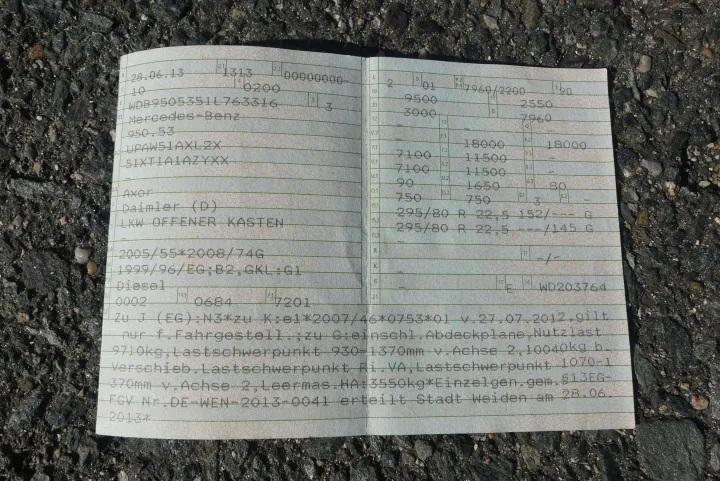 28.06.13 1313 00000000-
10 0200
WDB9505351L763316 3
Mercedes-Benz
950.53
UPAW51AXL2X
51XT1A1AZYXX
-
Axor
Daimler (D)
LKW OFFENER KASTEN
-
2005/55*2008/74G
1999/96/EG;B2,GKL:G1
Diesel
0002 0684 7201
2 01 7960/2200 90
9500 2550
3000 7960
- - -
- 18000 18000
7100 11500 -
7100 11500 -
90 1650 80
750 750 3 -
295/80 R 22,5 152/--- G
295/80 R 22,5 ---/145 G
-
- -/-
- E WD203764
Zu J (EG):N3*zu K:e1*2007/46*0753*01 v.27.07.2012,gilt
nur f.Fahrgestell.;zu G:einschl.Abdeckplane,Nutzlast
9710kg,Lastschwerpunkt 930-1370mm v.Achse 2,10040kg b.
Verschieb.Lastschwerpunkt Ri.VA,Lastschwerpunkt 1070-1
370mm v.Achse 2,Leermas.HA:3550kg*Einzelgen.gem.§13EG-
FGV Nr.DE-WEN-2013-0041 erteilt Stadt Weiden am 28.06.
2013*